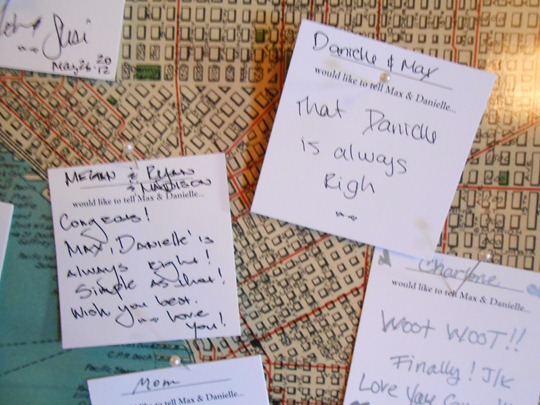 Susi
May 26. 2012
Danielle & Max
would like to tell Max & Danielle...
That Danielle
is always
Righ
MEGAN & RYAN
& MADDISON
would like to tell Max & Danielle...
Congrats!
MAX, DANIELLE is
always Right!
Simple as that!
Wish you best.
love
you!
Charlene
would like to tell Max & Danielle...
WOOT WOOT!!
Finally! J/K
Love You
Mom
would like to tell Max & Danielle...